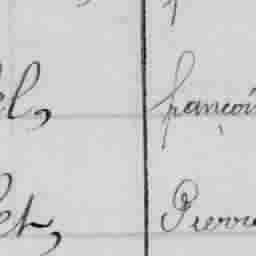 el, françois
et, Pierre